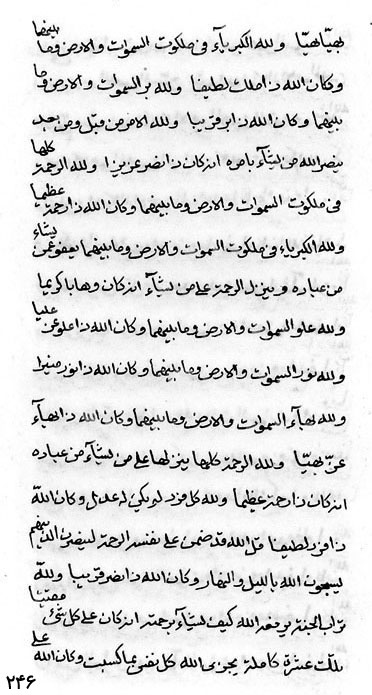 بهیّاً بهیّا ولله الکبریآء فی ملکوت السموات والارض وما بینهما
وکان الله ذا ملک لطیفا ولله بر السموات والارض وما
بینهما وکان الله ذا بر قریبا ولله الامر من قبل ومن بعد
ینصر الله من یشآء بامره انه کان ذا نصر عزیزا ولله الرحمة کلها
فی ملکوت السموات والارض وما بینهما وکان الله ذا رحمة عظیما
ولله الکبریاء فی ملکوت السموات والارض وما بینهما یعفو عمن یشآء
من عباده وینزل الرحمة علی من یشآء انه کان وهابا کریما
ولله علو السموات والارض وما بینهما وکان الله ذا علو علیا
ولله نور السموات والارض وما بینهما وکان الله ذا نور منیرا
ولله بهآء السموات والارض وما بینهما وکان الله ذا بهآء
بهیّا ولله الرحمة کلها ینزلها علی من یشآء من عباده
انه کان ذا رحمة عظیما ولله کل فرد لم یکن له عدل وکان الله
ذا فرد لطیفا قل الله قد ضمن علی نفسه الرحمة
لیسبحون الله باللیل والنهار وکان الله ذا نصر قریبا ولله
تراب الجنة یرفعه الله کیف یشآء برحمته انه کان علی کل شیء مقیتا
تلک عشرة کاملة یجزی الله کل نفس بما کسبت وکان الله علی
۲۴۶